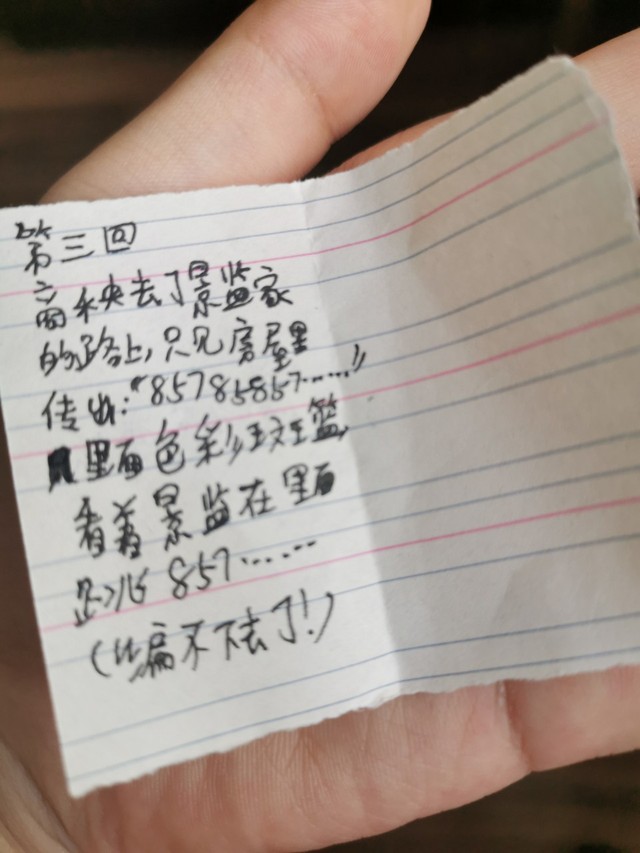 第三回
商秧去了景监家
的路上,只见房屋里
传出:“85785857……”
里面色彩斑篮,
看着景监在里面
跳 857……
(编不下去了!)